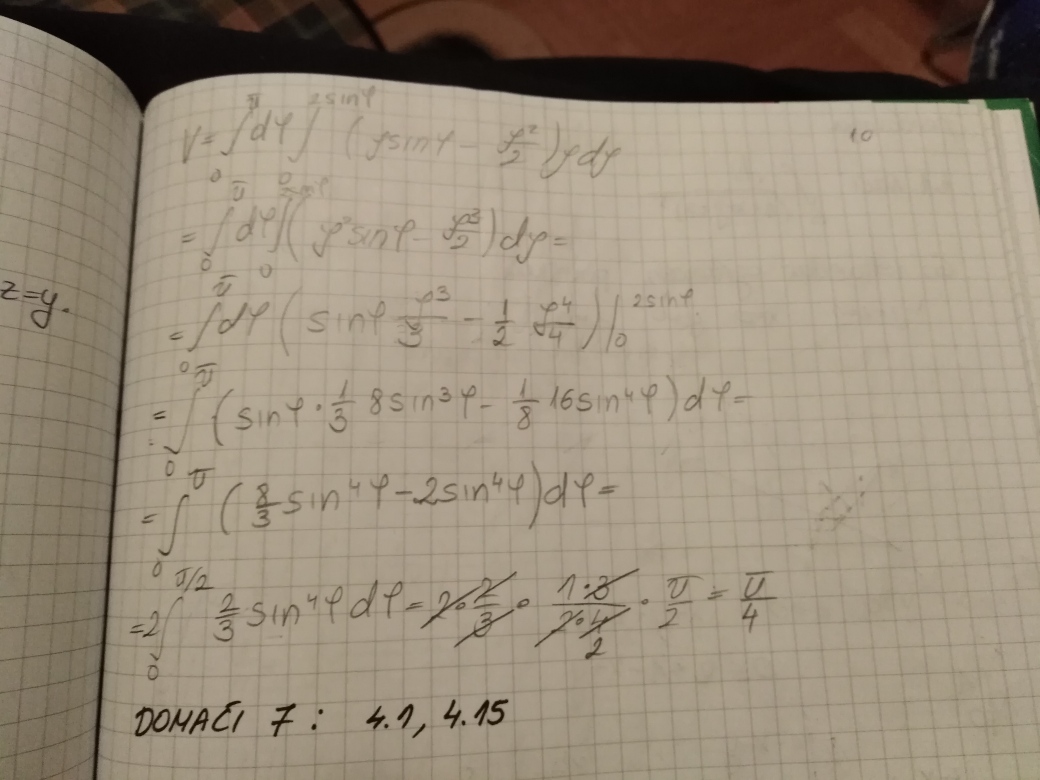 10
V = ∫₀^π dφ ∫₀^{2sinφ} (ρsinφ - ρ²/2) ρdρ
= ∫₀^π dφ ∫₀^{2sinφ} (ρ²sinφ - ρ³/2) dρ =
z=y.
= ∫₀^π dφ (sinφ ρ³/3 - 1/2 ρ⁴/4) |₀^{2sinφ}
= ∫₀^π (sinφ · 1/3 8sin³φ - 1/8 16sin⁴φ) dφ =
= ∫₀^π (8/3 sin⁴φ - 2sin⁴φ) dφ =
= 2 ∫₀^{π/2} 2/3 sin⁴φ dφ = 2 · 2/3 · 1·3/2·4 2 · π/2 = π/4
DOMAĆI 7 : 4.1, 4.15